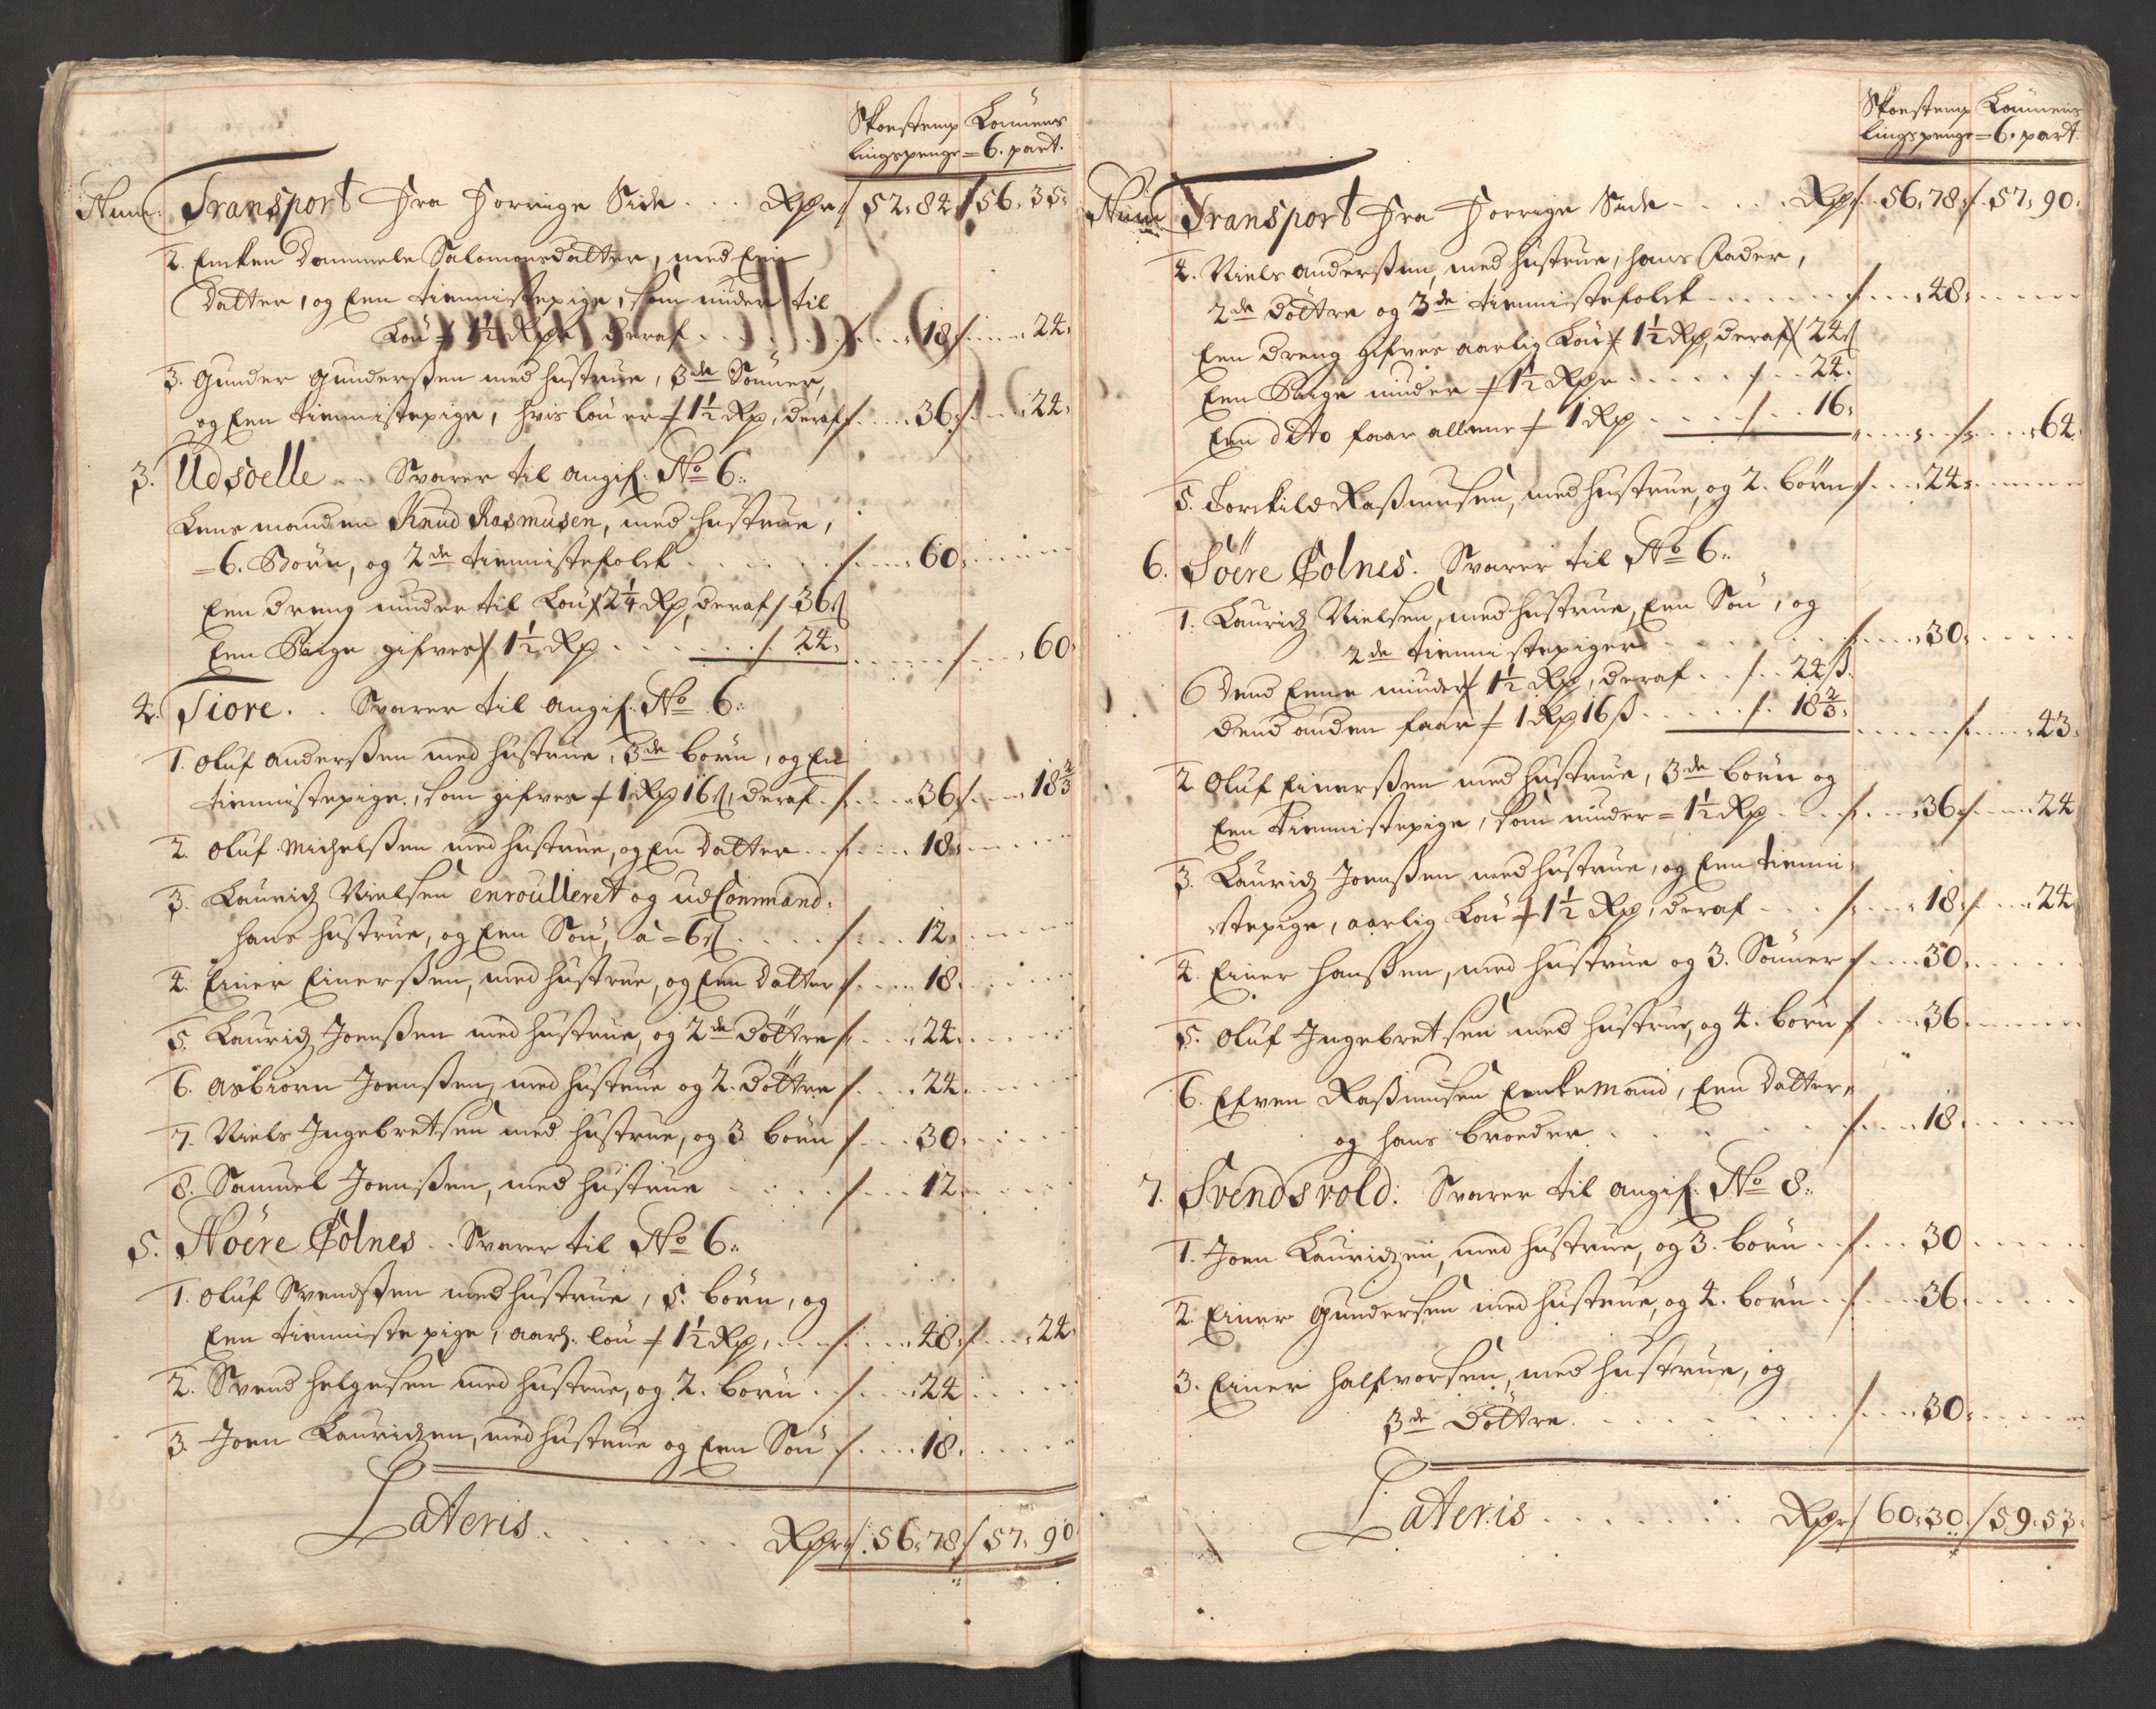 Skoestemp Lønnens
lingspenge = 6. part.
Num: Transport Fra Forrige Side . . . Rdr / 52. 82 / 56. 35.
2. Encken Dammele Salomonsdatter, med Een
Datter, og Een tiennistepige, som nÿder til
Løn 1½ Rdr deraf . . . 18 / . . . 24.
3. Gunder Gunderßen med hustrue, 3de Sønner,
og Een tiennistepige, hvis løn er 1½ Rd, deraf / . . . 36 / . . . 24.
3. Udsoelle . . Svarer til angif: No 6.
Lensmanden Knud Rasmusen, med hustrue,
6. Børn, og 2de tiennistefolck . . . / . . . 60.
Een dreng nÿder til Løn 2¼ Rd, deraf / 36 ß
Een Pige gifves 1½ Rd . . . / 24. . . . / . . . 60.
4. Tiore . . Svarer til angif: No 6.
1. Oluf anderßen med hustrue, 3de børn, og En
tiennistepige, som gifves 1 Rd 16 ß, deraf . / . . . 36 / . . . 18⅔
2. Oluf Michelßen med hustrue, og En datter . . / . . . 18.
3. Lauridz Nielsen enroulleret og udCommand:
hans hustrue, og Een Søn, à 6 ß . . . / . . . 12.
4. Einer Einerßen, med hustrue, og Een datter / . . . 18.
5. Lauridz Joenßen med hustrue, og 2de døttre / . . . 24.
6. Asbiørn Joenßen, med hustrue og 2. døttre / . . . 24.
7. Niels Ingebretsen med hustrue, og 3 børn / . . . 30.
8. Samuel Joenßen, med hustrue . . . / . . . 12.
5. Nøere Cølnes . . Svarer til No 6.
1. Oluf Svendßen med hustrue, 5. børn, og
Een tienniste pige, aarl. løn 1½ Rd, . . . / . . . 48 / . . . 24.
2. Svend helgesen med hustrue, og 2. børn . . / . . . 24.
3. Joen Lauridzen, med hustrue og Een Søn / . . . 18.
Lateris . . . Rdr / 56. 78 / 57. 90
Skoestemp Lønnens
lingspenge = 6. part.
Num Transport Fra Forrige Side . . . Rd / 56. 78 / 57. 90.
4. Niels anderßen, med hustrue, hans Fader,
2de døttre og 3de tiennistefolck . . . / . . . 48.
Een dreng gifves aarlig Løn 1½ Rd, deraf 24 ß
Een Pige nÿder 1½ Rdr . . . / . . 24.
Een dito faar allene 1 Rd . . . / . . 16. . . . / . . . 64.
5. Torckild Raßmusen, med hustrue, og 2. børn / . . . 24.
6. Søere Cølnes. Svarer til No 6.
1. Lauridz Nielsen, med hustrue, Een Søn, og
2de tiennistepiger . . . / . . . 30.
Dend Eene nÿder 1½ Rd, deraf . . / . . 24 ß.
dend anden faar 1 Rd 16 ß . . . / . 18⅔. . . . / . . . 43.
2 Oluf Einerßen med hustrue, 3de børn og
Een tiennistepige, som nÿder = 1½ Rd . . . / . . . 36 / . . . 24
3. Lauridz Joenßen med hustrue, og Een tienni-
stepige, aarlig Løn 1½ Rd, deraf . . . / . . . 18 / . . . 24
4. Einer hanßen, med hustrue og 3. Sønner / . . . 30.
5. Oluf Ingebretsen med hustrue, og 4. børn / . . . 36.
6. Efven Raßmusen Enckemand, Een datter,
og hans broeder . . . / . . . 18.
7. Svendsvold. Svarer til angif: No 8.
1. Joen Lauridzen, med hustrue, og 3. børn . . / . . . 30
2. Einer Gundersen med hustrue, og 4. børn . . / . . . 36.
3. Einer halfvorsen, med hustrue, og
3de døttre . . . / . . . 30.
Lateris . . . Rdr / 60. 30. / 59. 53.